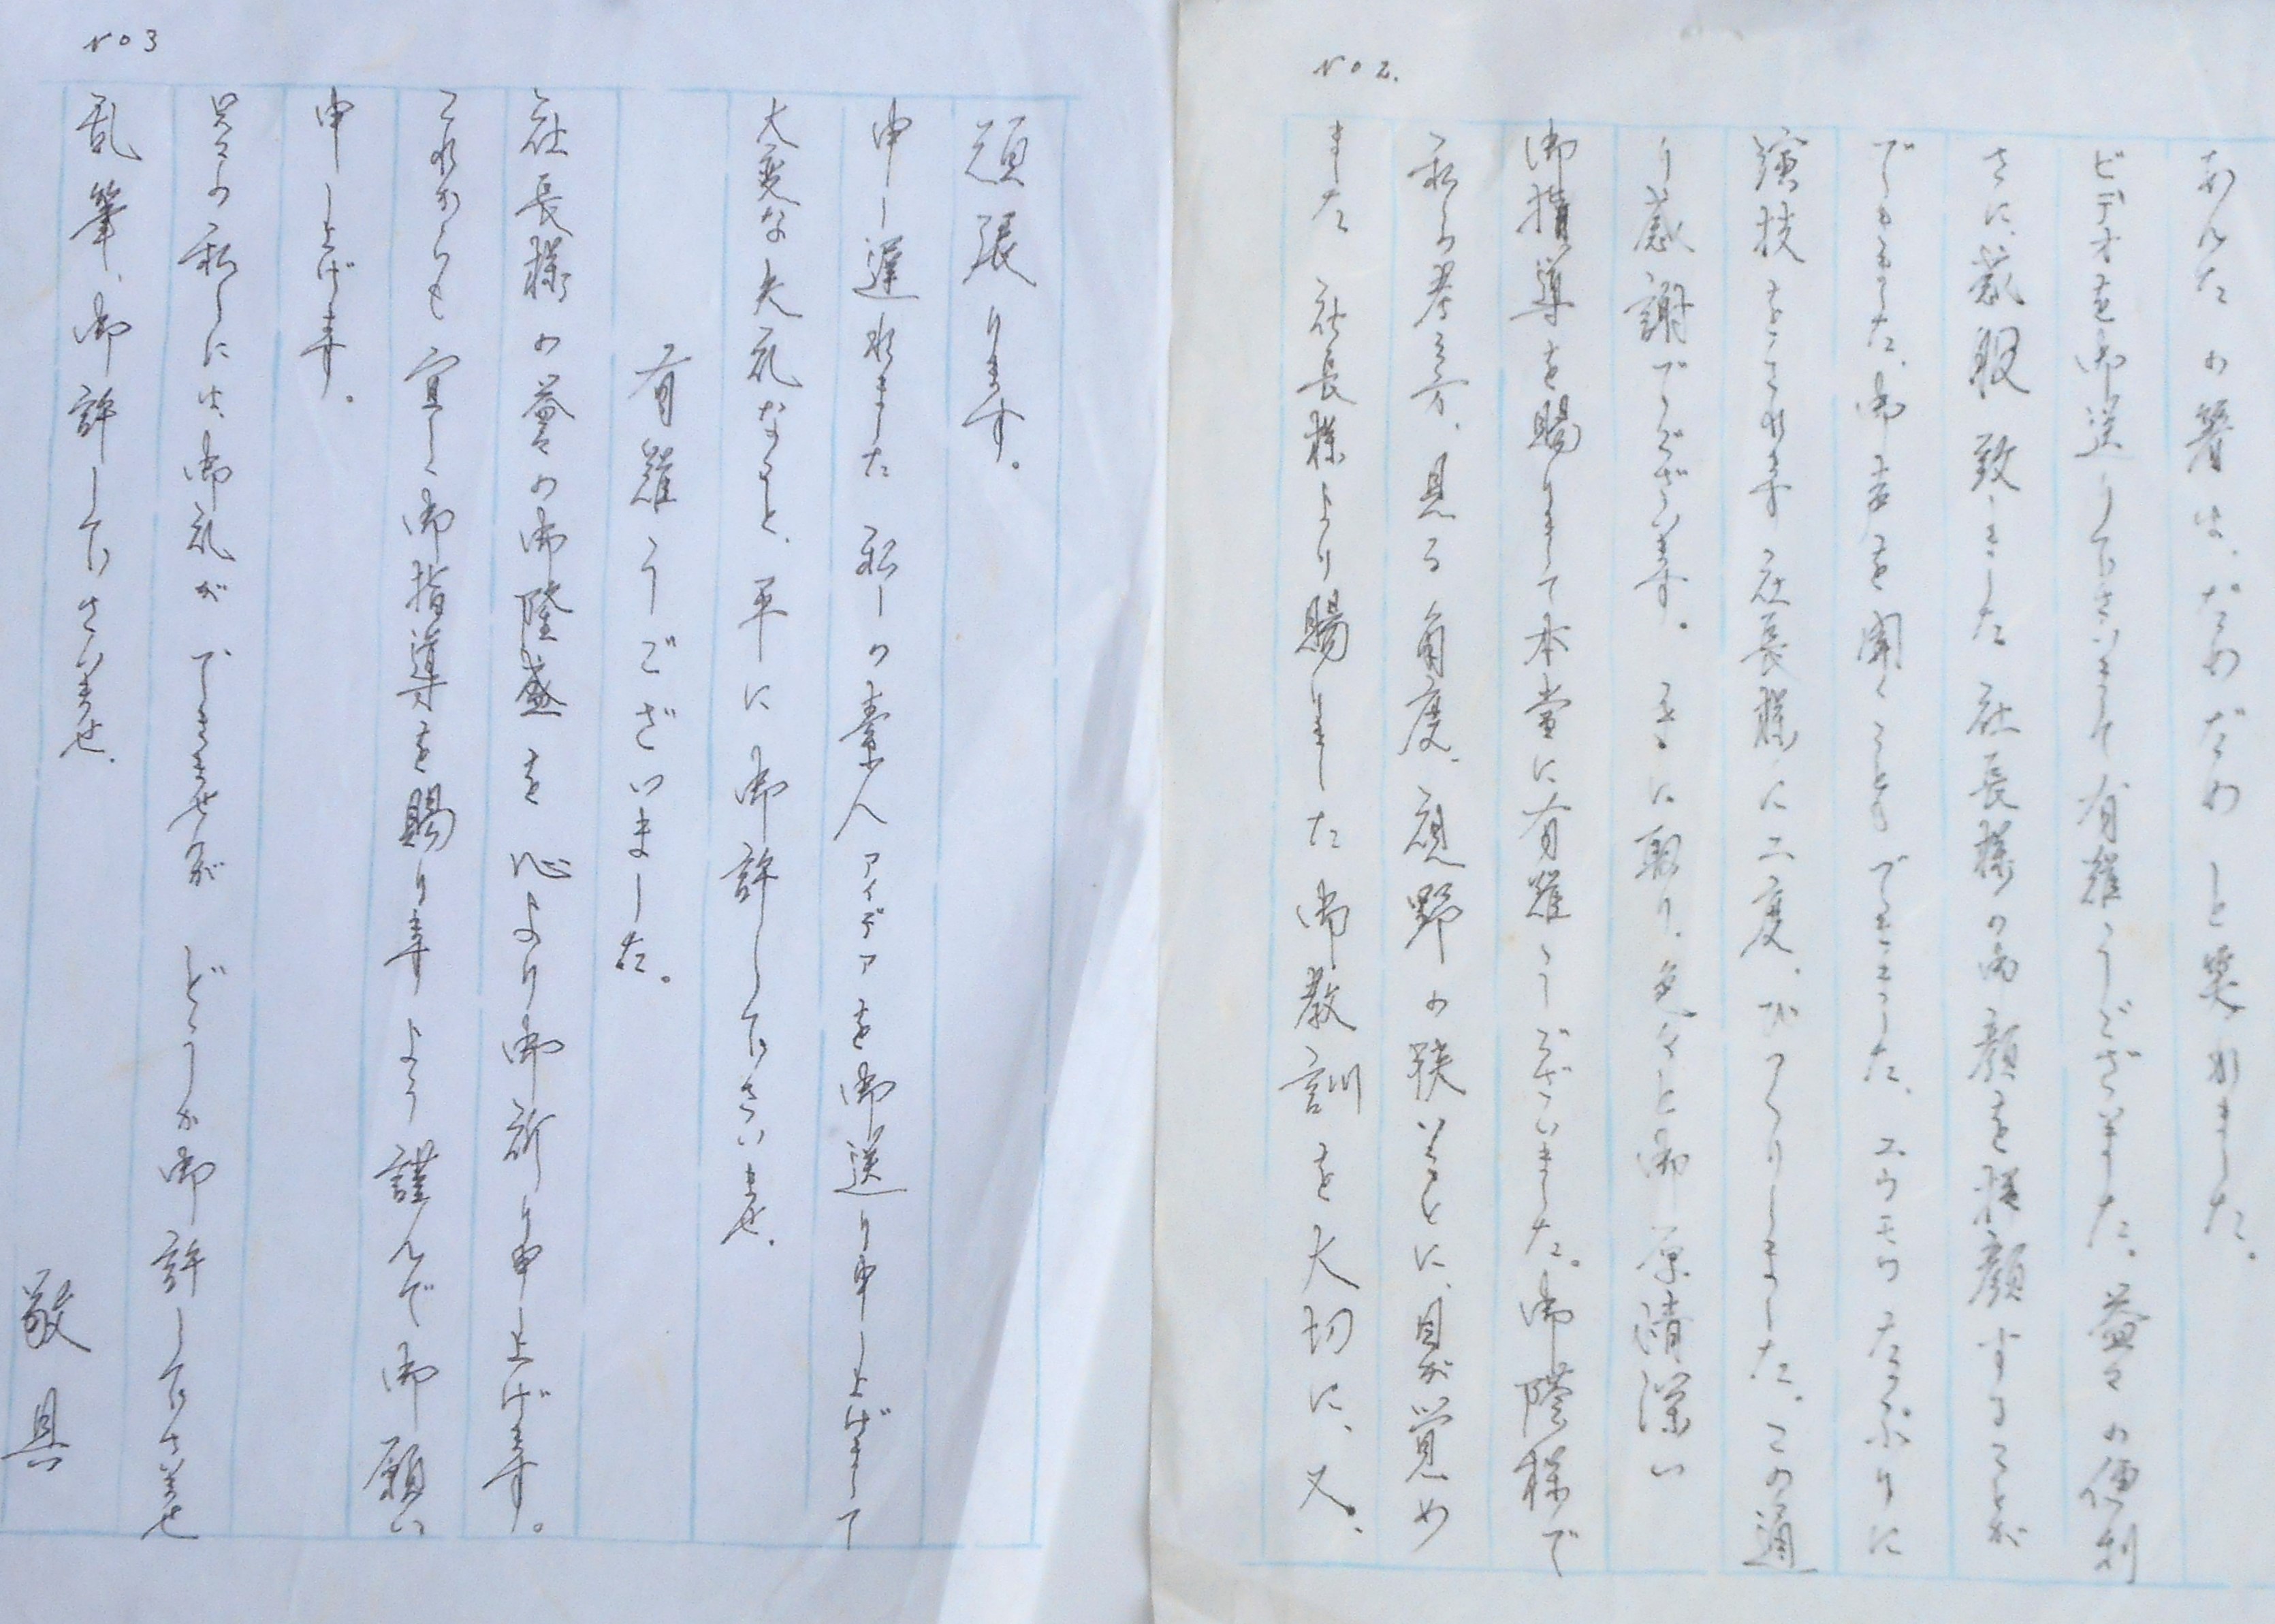 No 2.
あんたの箸は、だめだめと笑われました。
ビデオを御送り下さいまして有難うございました。益々の便利
さに感服致しました 社長様の御顔を拝顔することが
できました、御声を聞くこともできました、ユウモワたっぷりに
演技をこれます 社長様に二度、びっくりしました。この通
り感謝でございます。手に取り、色々と御厚情深い
御指導を賜りまして本当に有難うございました。御陰様で
私の考え方、見る角度、視野の狭いことに、目が覚め
ました 社長様より賜りました御教訓を大切に、又、
No 3
頑張ります。
申し遅れました 私しの素人アイデアを御送り申し上げまして
大変な失礼なこと、平に御許し下さいませ、
有難うございました。
社長様の益々の御隆盛を心より御祈り申し上げます。
これからも宜しく御指導を賜ります よう謹んで御願い
申し上げます。
只今の私しには、御礼ができませぬが どうか御許し下さいませ
乱筆、御許し下さいませ、
敬具